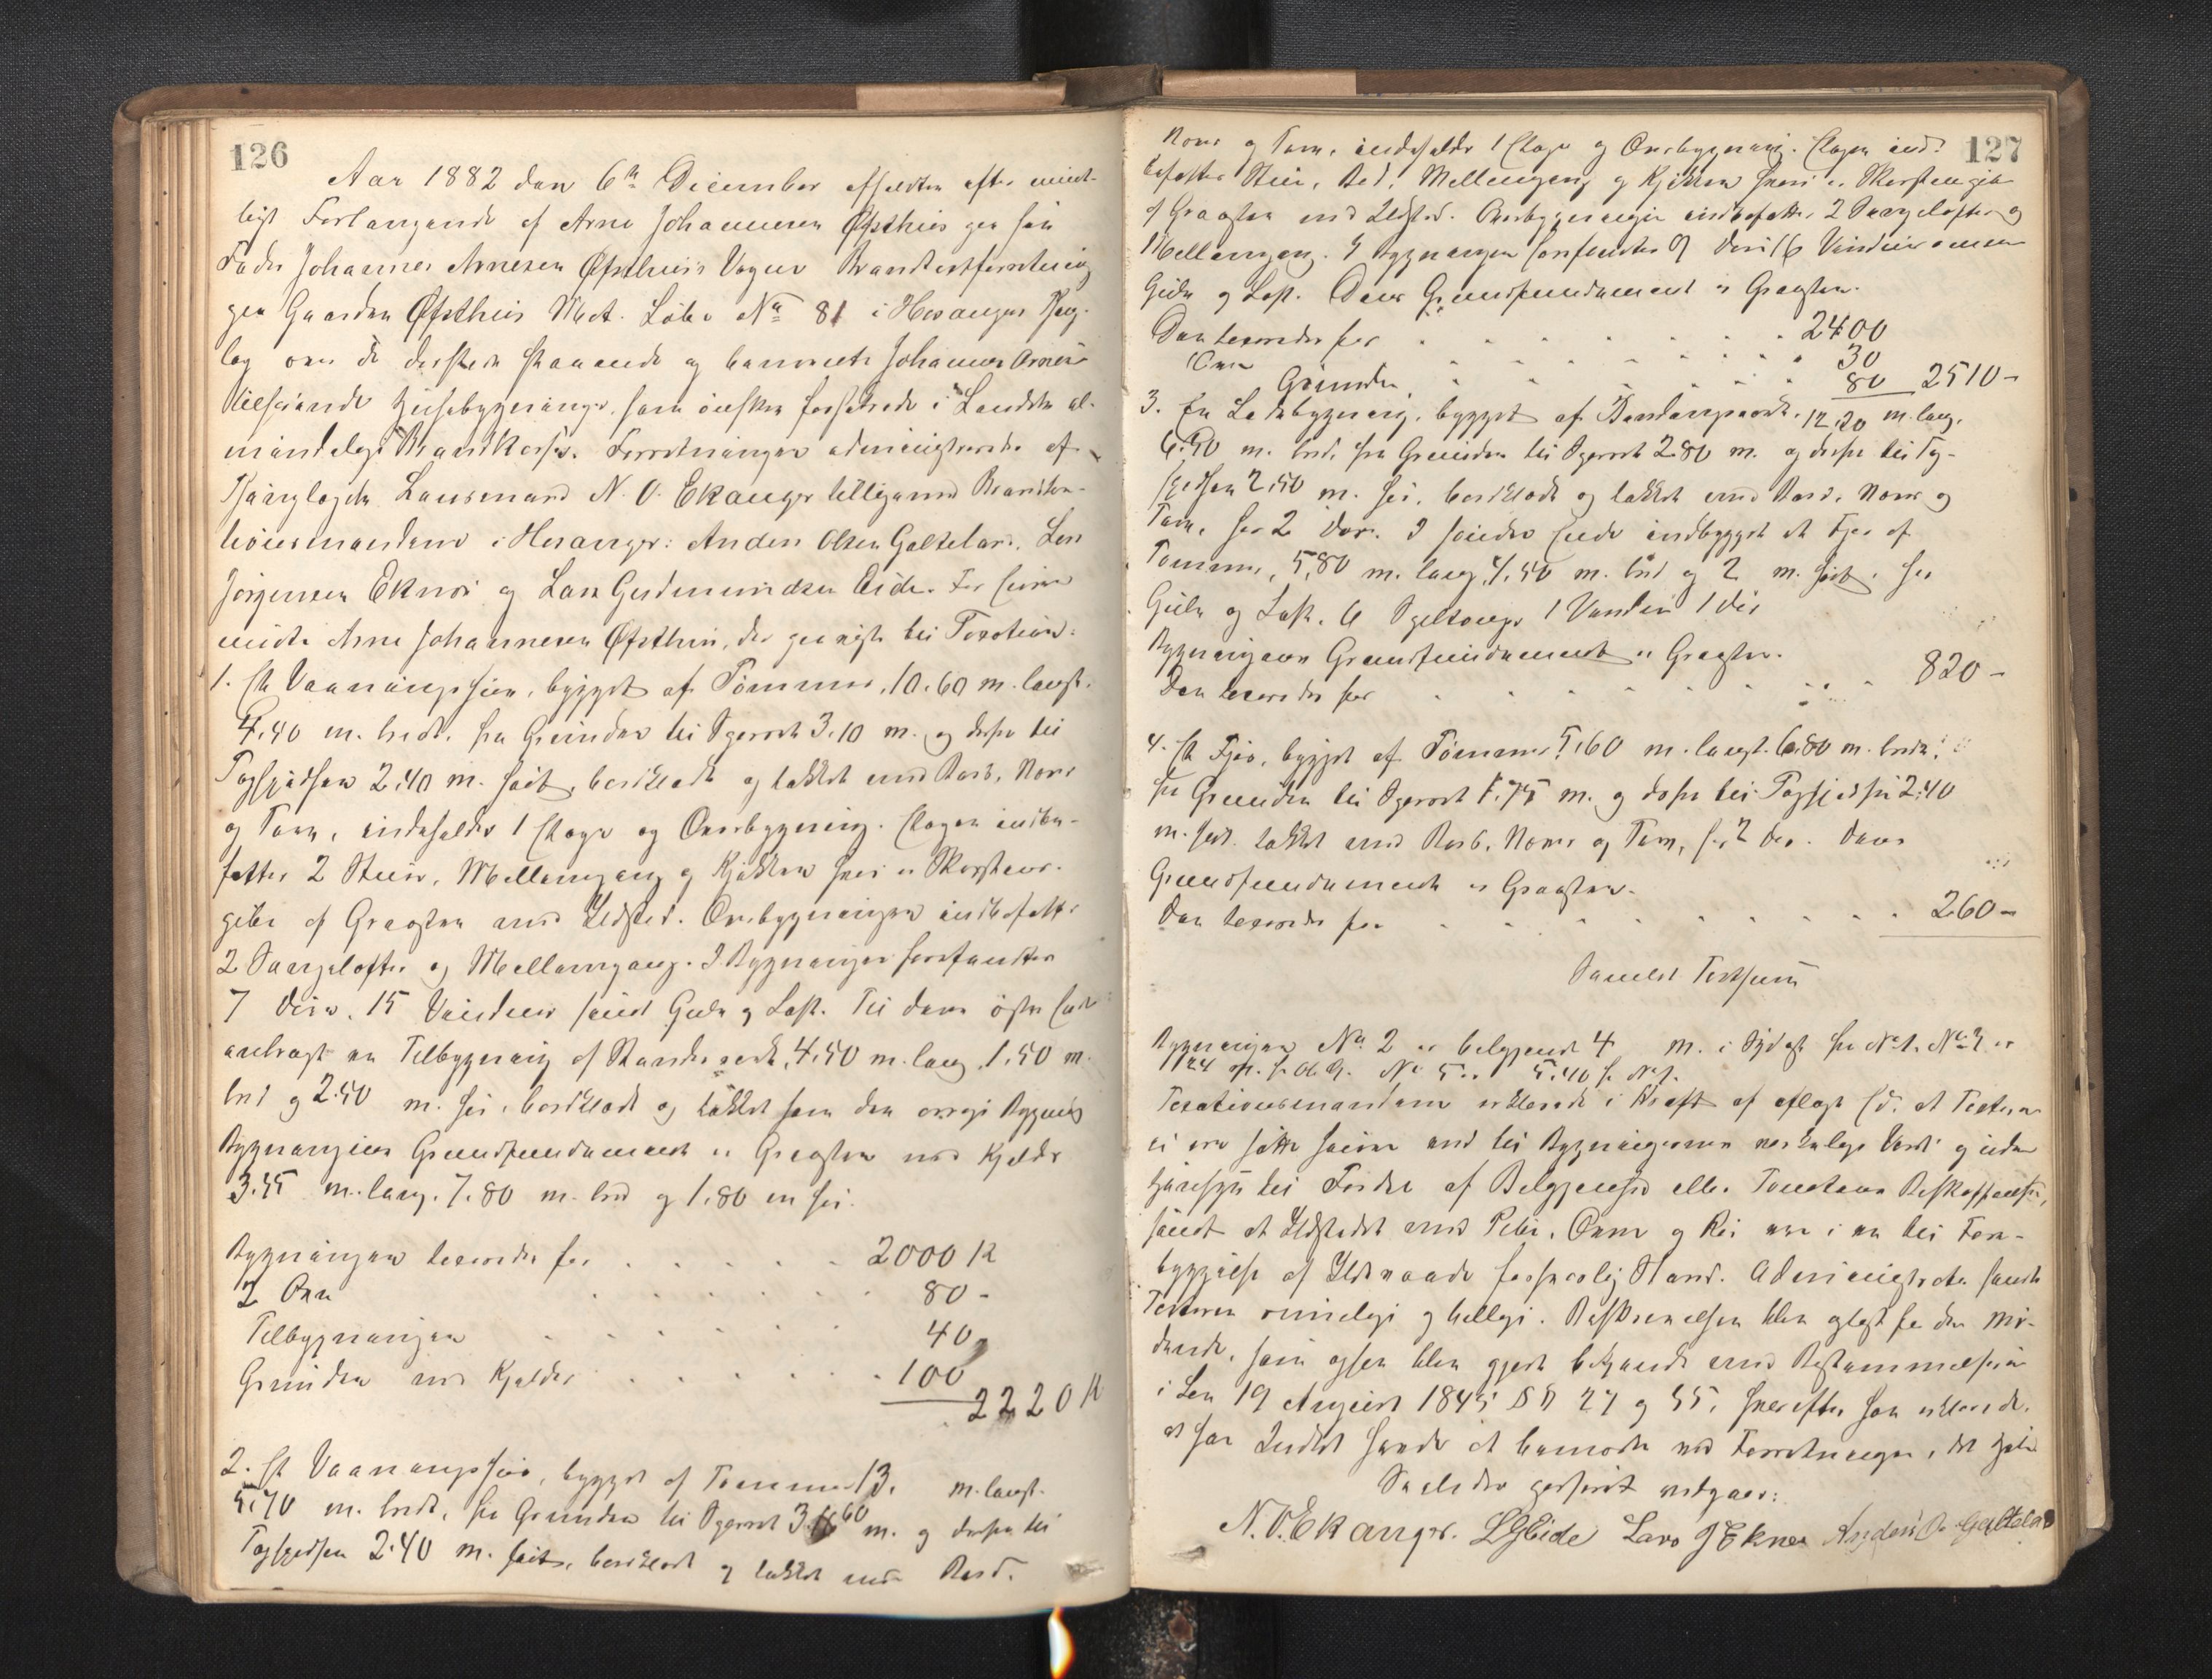 126
Aar 1882 den 6te December afholdtes efter mundt-
ligt Forlangende af Arne Johannesen Øfsthus paa sin
Fader Johannes Arnesen Øfsthus's Vegne Brandtaxtforretning
paa Gaarden Øfsthus Mat. Løbe No 81 i Hosanger Thing-
lag over de dersteds staaende og bemeldte Johannes Arnesen
tilhørende Huusbygninger, som ønskes forsikrede i Landets al-
mindelige Brandkasse. Forretningen administreredes af
Thinglagets Lensmand N. O. Ekanger tilligemed Brandtax-
tionsmændene i Hosanger: Anders Olsen Galtelar, Lars
Jørgensen Eknæs og Lars Gudmundsen Eide. For Eieren
mødte Arne Johannesen Øfsthus, der paaviste til Taxation:
1. Et Vaaningshuus, bygget af Tømmer, 10.60 m. langt.
4.40 m. bredt, fra Grunden til Sperret 3.10 m. og derfra til
Tagspidsen 2.40 m. høit, bordklædt og tækket med Bord, Næver
og Tørv, indeholder 1 Etage og Overbygning. Etagen indbe-
fatter 2 Stuer, Mellemgang og Kjøkken hvori er Skorsteens-
pibe af Graasten med Ildsted. Overbygningen indbefatter
2 Sængelofter og Mellemgang. I Bygningen forefandtes
7 Døre, 15 Vinduer samt Gulv og Loft. Til dens østre Ende
anbragt en Tilbygning af Standerverk, 4.50 m. lang, 1.50 m.
bred og 2.50 m. høi, bordklædt og tækket som den øvrige Bygning
Bygningens Grundfundament er Graasten med Kjelder
3.55 m. lang. 7.80 m. bred og 1.80 m høi.
Bygningen taxeredes for . . . . . 2000 K
2 Ovne . . . . . . 80 -
Tilbygningen . . . . . . 40
Grunden med Kjelder . . . . . . 100
2220 K
2. Et Vaaningshuus, bygget af Tømmer 13. m. langt.
5.70 m. bredt, fra Grunden til Sperret 3.60 m. og derfra til
Tagspidsen 2.40 m. høit, bordklædt og tækket med Bord.
127
Næver og Tørv, indeholder 1 Etage og Overbygning. Etagen ind-
befatter Stue, Bod, Mellemgang og Kjøkken hvori er Skorstenspibe
af Graasten med Ildsted. Overbygningen indbefatter 2 Sængelofter og
Mellemgang. I Bygningen forefandtes 9 Døre 16 Vinduer samt
Gulv og Loft. Dens Grundfundament er Graasten.
Den taxeredes for . . . . . . 2400
Ovn . . . . . . . 30
Grunden . . . . . . 80 2510 -
3. En Ladebygning, bygget af Standerverk. 12,20 m. lang,
6.50 m. bred, fra Grunden til Sperret 2.80 m. og derfra til Tag-
spidsen 2.50 m. høi, bordklædt og tækket med Bord, Næver og
Tørv, har 2 Døre. I søndre Ende indbygget et Fjøs af
Tømmer, 5,80 m. lang, 4.50 m. bred og 2 m. høit, har
Gulv og Loft. 6 Spiltouge 1 Vindue 1 Dør
Bygningens Grundfundament er Graasten.
Den taxeredes for . . . . . . . . 820 -
4. Et Fjøs, bygget af Tømmer 7.60 m. langt. 6.80 m. bredt,
fra Grunden til Sperret 1.75 m. og derfra til Tagspidsen 2.40
m. høit, tækket med Bord, Næver og Tørv, har 2 Døre. Dens
Grundfundament er Graasten.
Den taxeredes for . . . . . . . . 260 -
Samlet Taxtsum
Bygningen No 2 er beliggende 4 m. i Sydøst fra No 1. No 3 er
124 m. fra No 5.40 fra No 1.
Taxationsmændene erklærede i Kraft af aflagt Ed, at Taxterne
ei ere satte høiere end til Bygningernes verkelige Værdi og uden
Hensyn til Fordel af Beliggenhed eller Tomtens Beskaffenhed,
samt at Ildstedet med Piber, Ovne og Rør ere i en til Fore-
byggelse af Ildsvaade forsvarlig Stand. Administrator fandt
Taxterne rimelige og billige. Beskrivelsen blev oplæst for den Mø-
dende, som ogsaa blev gjort bekjendt med Bestemmelserne
i Lov 19 August 1845 §§ 27 og 55, hvorefter han erklærede,
at han Intet havde at bemærke ved Forretningen, det hele
Saaledes passeret vedgaaes:
N. O. Ekanger. L G Eide Lars J Eknes Anders O. Galtelar